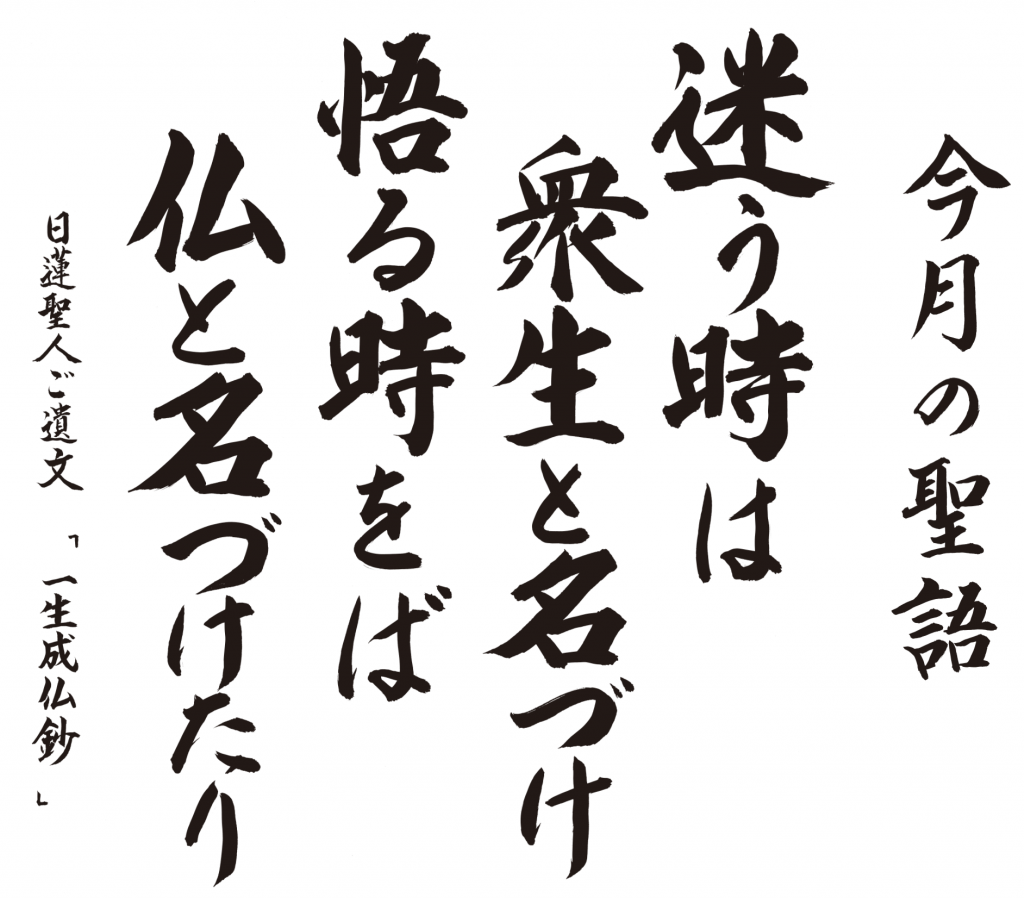 今月の聖語
迷う時は
衆生と名づけ
悟る時をば
仏と名づけたり
日蓮聖人ご遺文「一生成仏鈔」